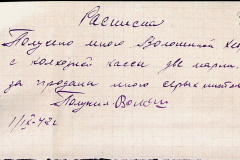 Расписка
Получено мною Волошиной
с колхозной кассы две марки
за проданы мною
Получил Волош
1/IX-42 г